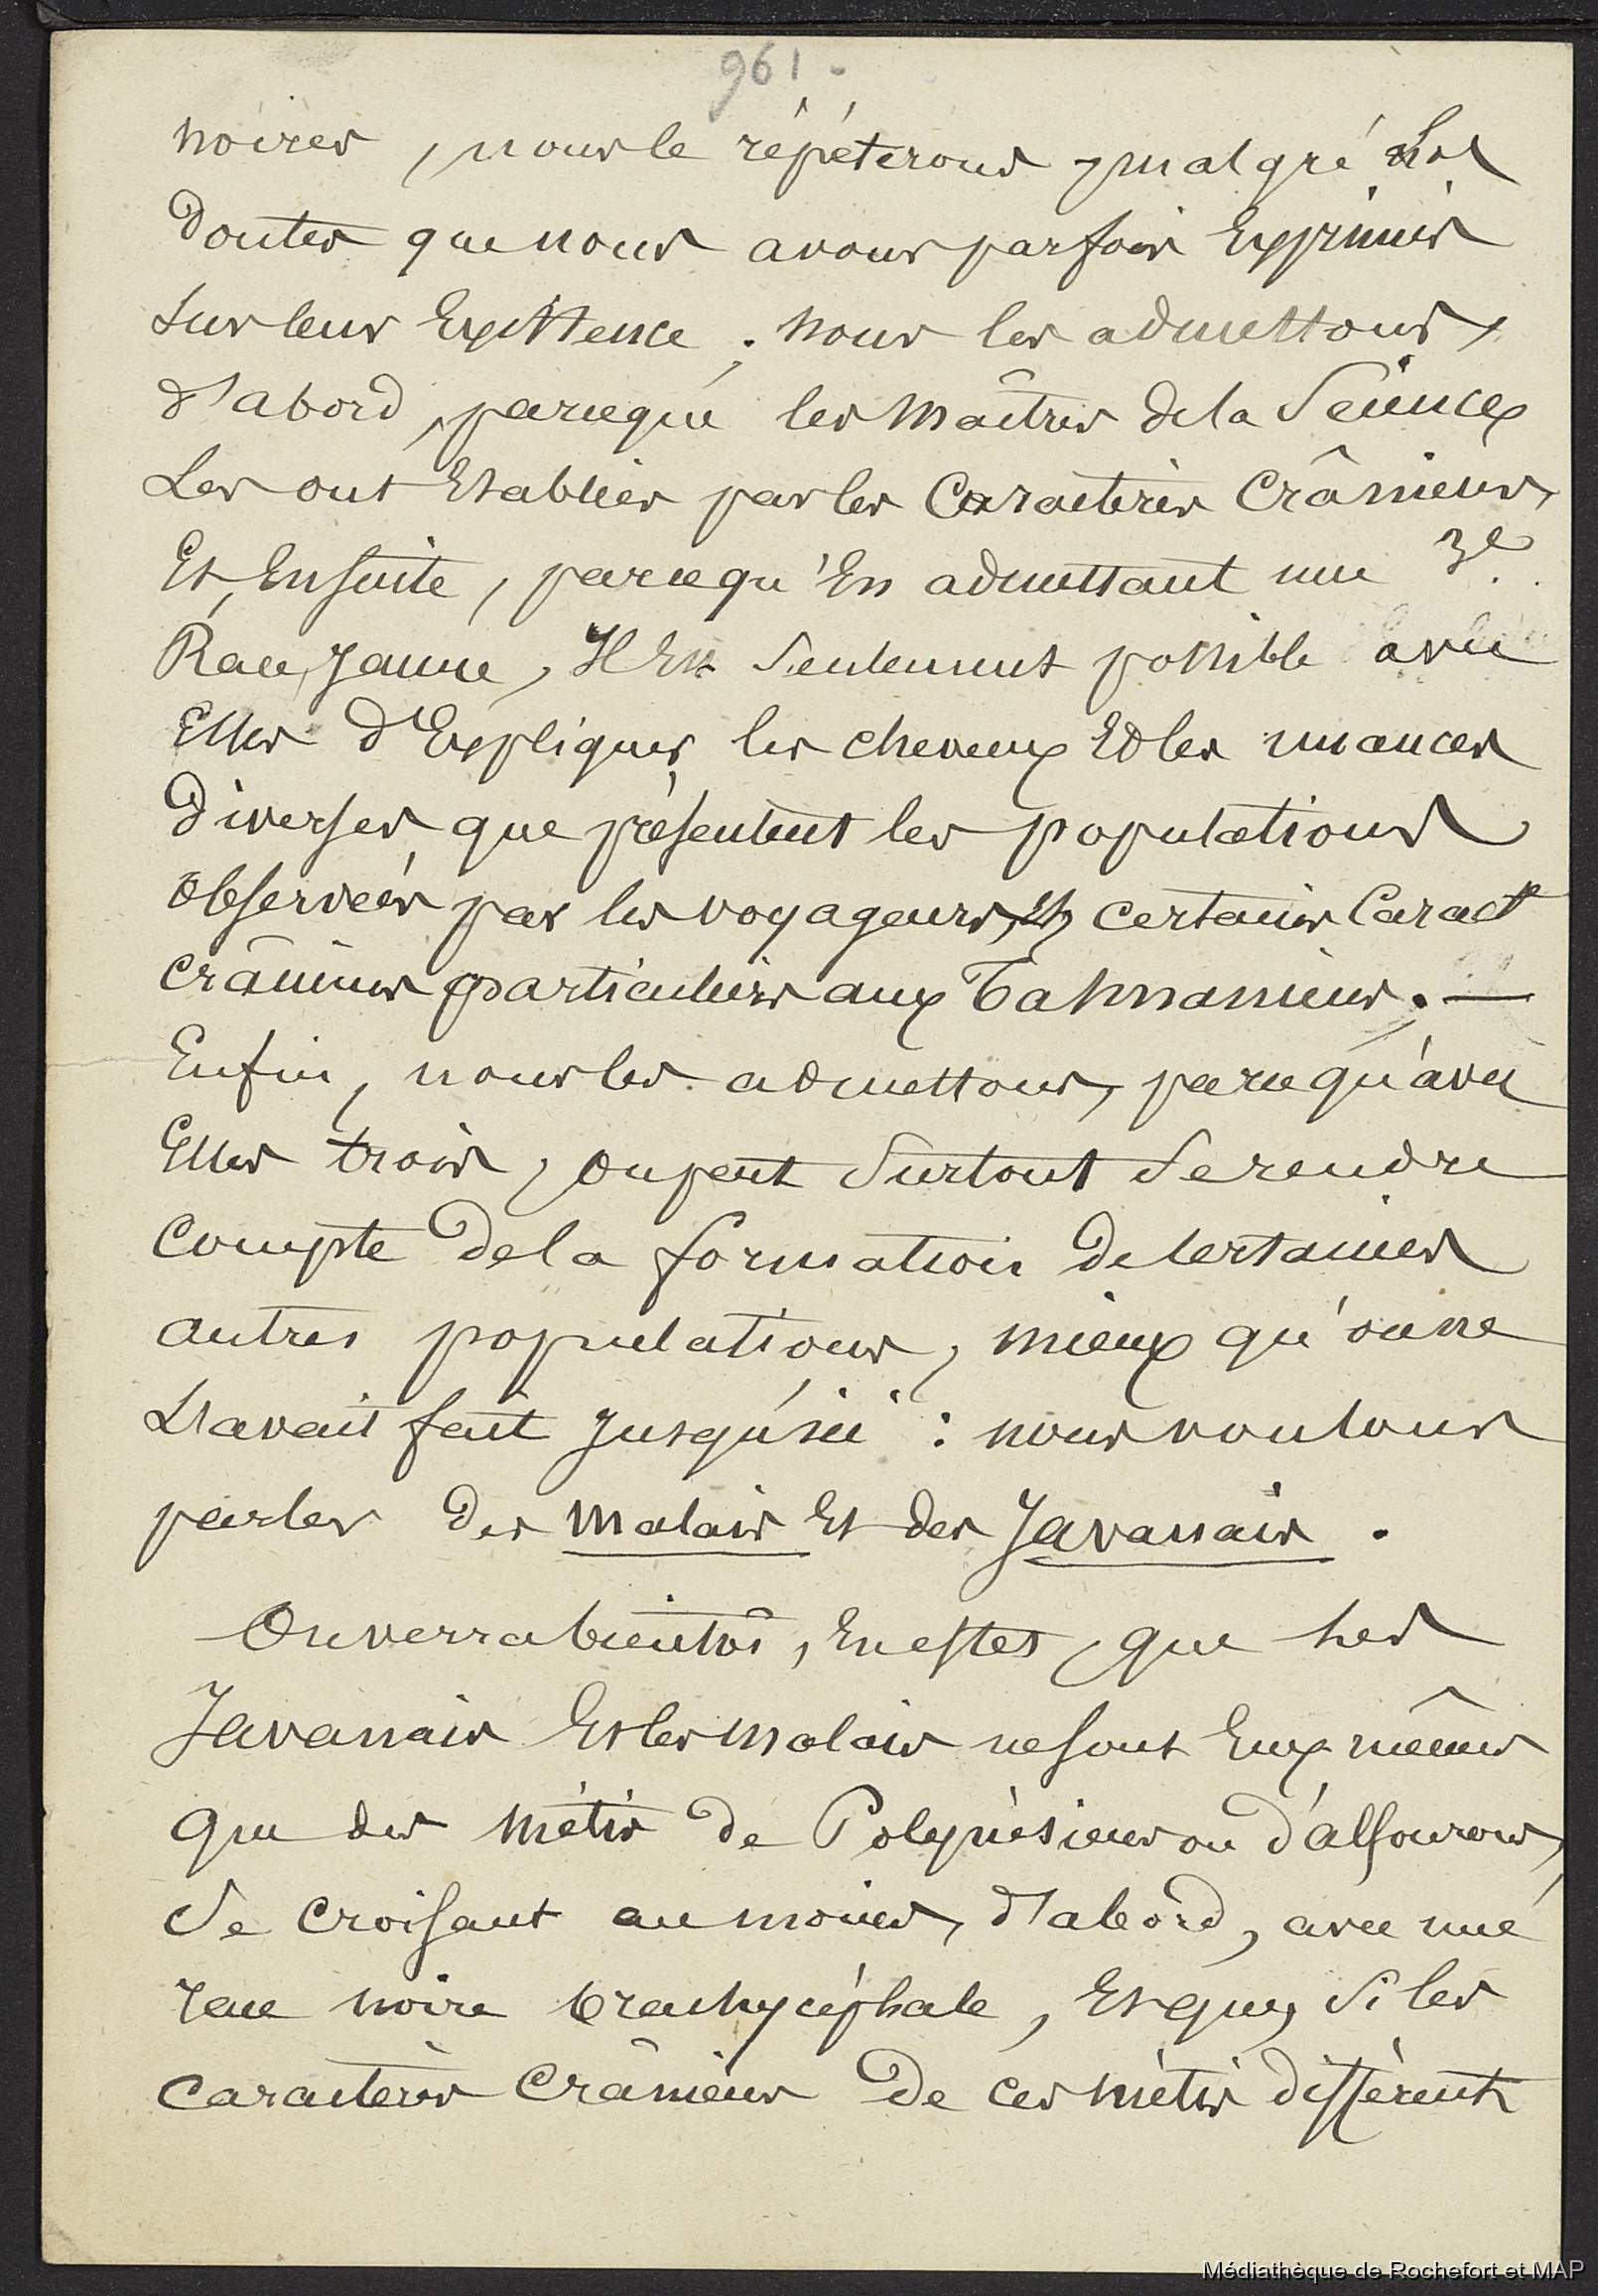 961.
noires, nous le répéterons, malgré les
doutes que nous avons parfois exprimés
sur leur existence ; nous les admettons,
d'abord, parceque les maîtres de la Science
les ont établies par les caractères crâniens,
et, ensuite, parcequ'en admettant une 3e
Race jaune, Il est seulement possible avec
Elles d'Expliquer les cheveux et les nuances
diverses que présentent les populations
observées par les voyageurs, et certains caract
crâniens particuliers aux Tasmaniens. —
Enfin, nous les admettons, parcequ'avec
Elles trois, on peut surtout se rendre
compte de la formation de certaines
autres populations, mieux qu'on ne
l'avait fait jusqu'ici : nous voulons
parler des Malais et des Javanais.
On verra bientôt, en effet, que les
Javanais et les Malais ne sont eux mêmes
que des métis de Polynésiens ou d'alfourous,
se croisant au moins, d'abord, avec une
race noire brachycéphale, et que, si les
caractères crâniens de ces métis diffèrent
Médiathèque de Rochefort et MAP